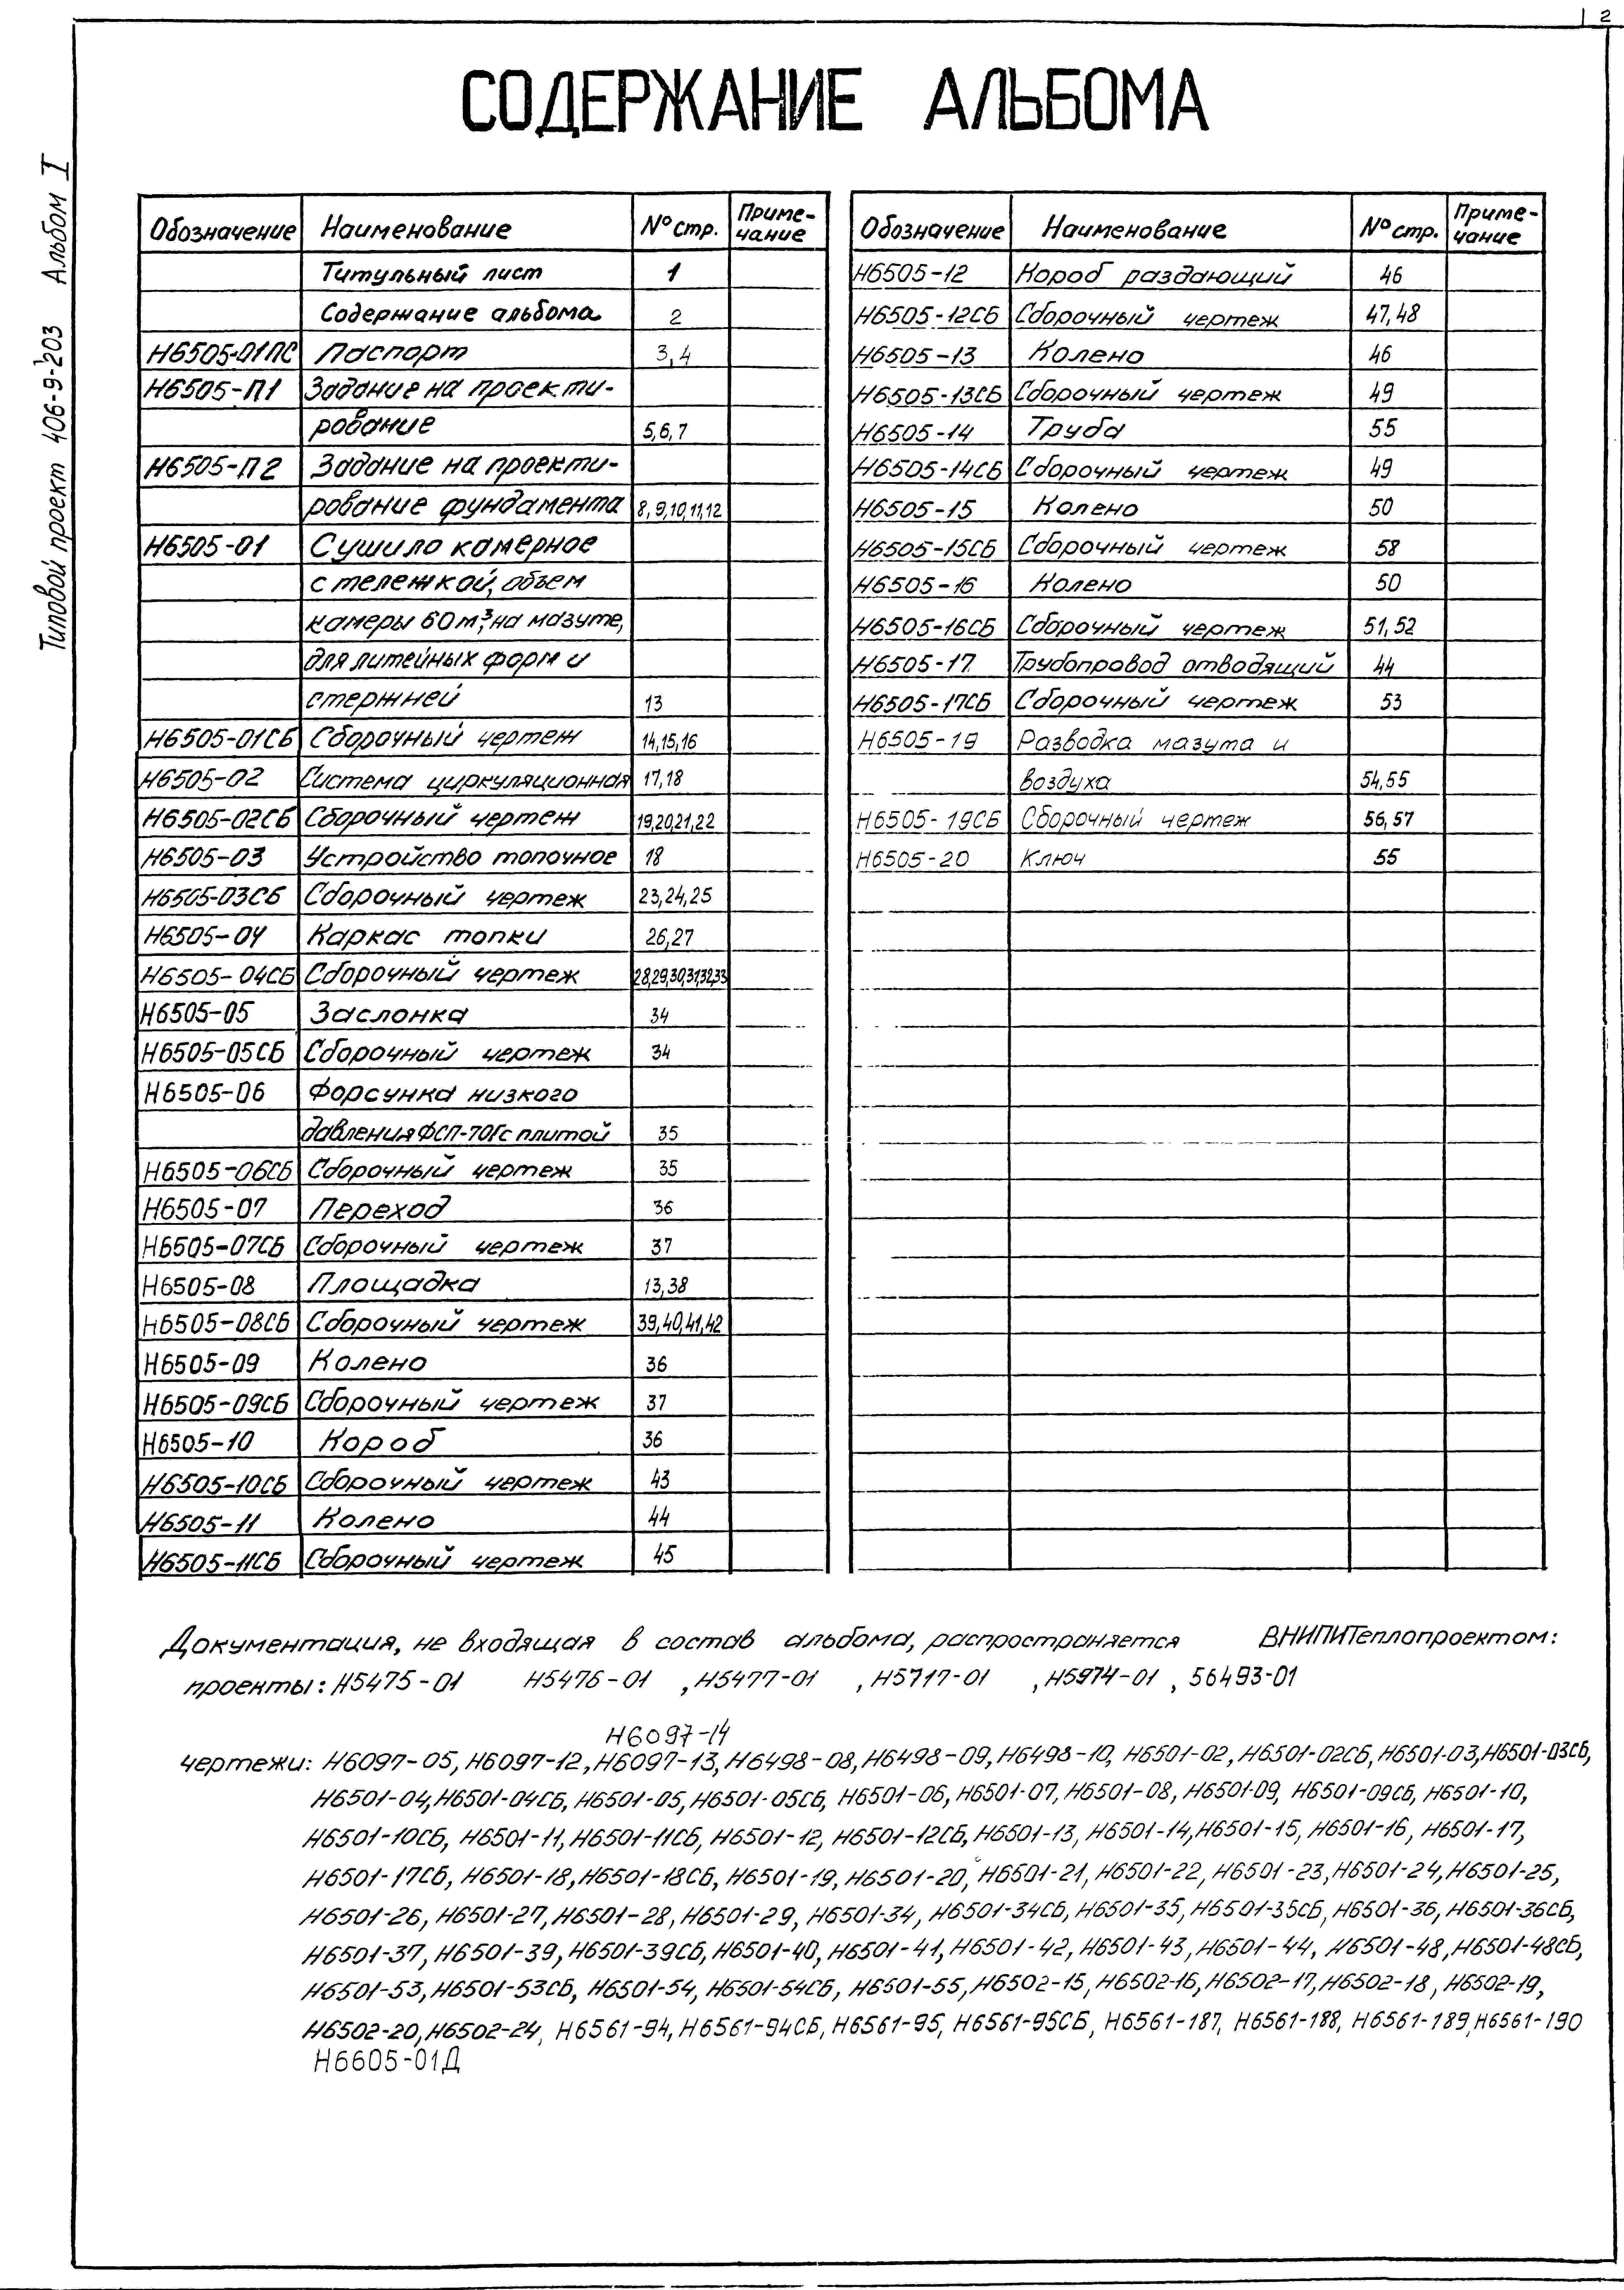 2
СОДЕРЖАНИЕ АЛЬБОМА
Типовой проект 406-9-203 Альбом I
Обозначение Наименование № стр. Приме-чание
Титульный лист 1
Содержание альбома 2
Н6505-01ПС Паспорт 3,4
Н6505-П1 Задание на проекти-
рование 5,6,7
Н6505-П2 Задание на проекти-
рование фундамента 8,9,10,11,12
Н6505-01 Сушило камерное
с тележкой, объем
камеры 60м³, на мазуте,
для литейных форм и
стержней 13
Н6505-01СБ Сборочный чертеж 14,15,16
Н6505-02 Система циркуляционная 17,18
Н6505-02СБ Сборочный чертеж 19,20,21,22
Н6505-03 Устройство топочное 18
Н6505-03СБ Сборочный чертеж 23,24,25
Н6505-04 Каркас топки 26,27
Н6505-04СБ Сборочный чертеж 28,29,30,31,32,33
Н6505-05 Заслонка 34
Н6505-05СБ Сборочный чертеж 34
Н6505-06 Форсунка низкого
давления ФСП-70Гс плитой 35
Н6505-06СБ Сборочный чертеж 35
Н6505-07 Переход 36
Н6505-07СБ Сборочный чертеж 37
Н6505-08 Площадка 13,38
Н6505-08СБ Сборочный чертеж 39,40,41,42
Н6505-09 Колено 36
Н6505-09СБ Сборочный чертеж 37
Н6505-10 Короб 36
Н6505-10СБ Сборочный чертеж 43
Н6505-11 Колено 44
Н6505-11СБ Сборочный чертеж 45
Обозначение Наименование № стр. Приме-чание
Н6505-12 Короб раздающий 46
Н6505-12СБ Сборочный чертеж 47,48
Н6505-13 Колено 46
Н6505-13СБ Сборочный чертеж 49
Н6505-14 Труба 55
Н6505-14СБ Сборочный чертеж 49
Н6505-15 Колено 50
Н6505-15СБ Сборочный чертеж 58
Н6505-16 Колено 50
Н6505-16СБ Сборочный чертеж 51,52
Н6505-17 Трубопровод отводящий 44
Н6505-17СБ Сборочный чертеж 53
Н6505-19 Разводка мазута и
воздуха 54,55
Н6505-19СБ Сборочный чертеж 56,57
Н6505-20 Ключ 55
Документация, не входящая в состав альбома, распространяется ВНИПИТеплопроектом:
проекты: Н5475-01 Н5476-01 , Н5477-01 , Н5717-01 , Н5974-01 , 56493-01
Н6097-14
чертежи: Н6097-05, Н6097-12, Н6097-13, Н6498-08, Н6498-09, Н6498-10, Н6501-02, Н6501-02СБ, Н6501-03, Н6501-03СБ,
Н6501-04, Н6501-04СБ, Н6501-05, Н6501-05СБ, Н6501-06, Н6501-07, Н6501-08, Н6501-09, Н6501-09СБ, Н6501-10,
Н6501-10СБ, Н6501-11, Н6501-11СБ, Н6501-12, Н6501-12СБ, Н6501-13, Н6501-14, Н6501-15, Н6501-16, Н6501-17,
Н6501-17СБ, Н6501-18, Н6501-18СБ, Н6501-19, Н6501-20, Н6501-21, Н6501-22, Н6501-23, Н6501-24, Н6501-25,
Н6501-26, Н6501-27, Н6501-28, Н6501-29, Н6501-34, Н6501-34СБ, Н6501-35, Н6501-35СБ, Н6501-36, Н6501-36СБ,
Н6501-37, Н6501-39, Н6501-39СБ, Н6501-40, Н6501-41, Н6501-42, Н6501-43, Н6501-44, Н6501-48, Н6501-48СБ,
Н6501-53, Н6501-53СБ, Н6501-54, Н6501-54СБ, Н6501-55, Н6502-15, Н6502-16, Н6502-17, Н6502-18, Н6502-19,
Н6502-20, Н6502-24, Н6561-94, Н6561-94СБ, Н6561-95, Н6561-95СБ, Н6561-187, Н6561-188, Н6561-189, Н6561-190
Н6605-01Д